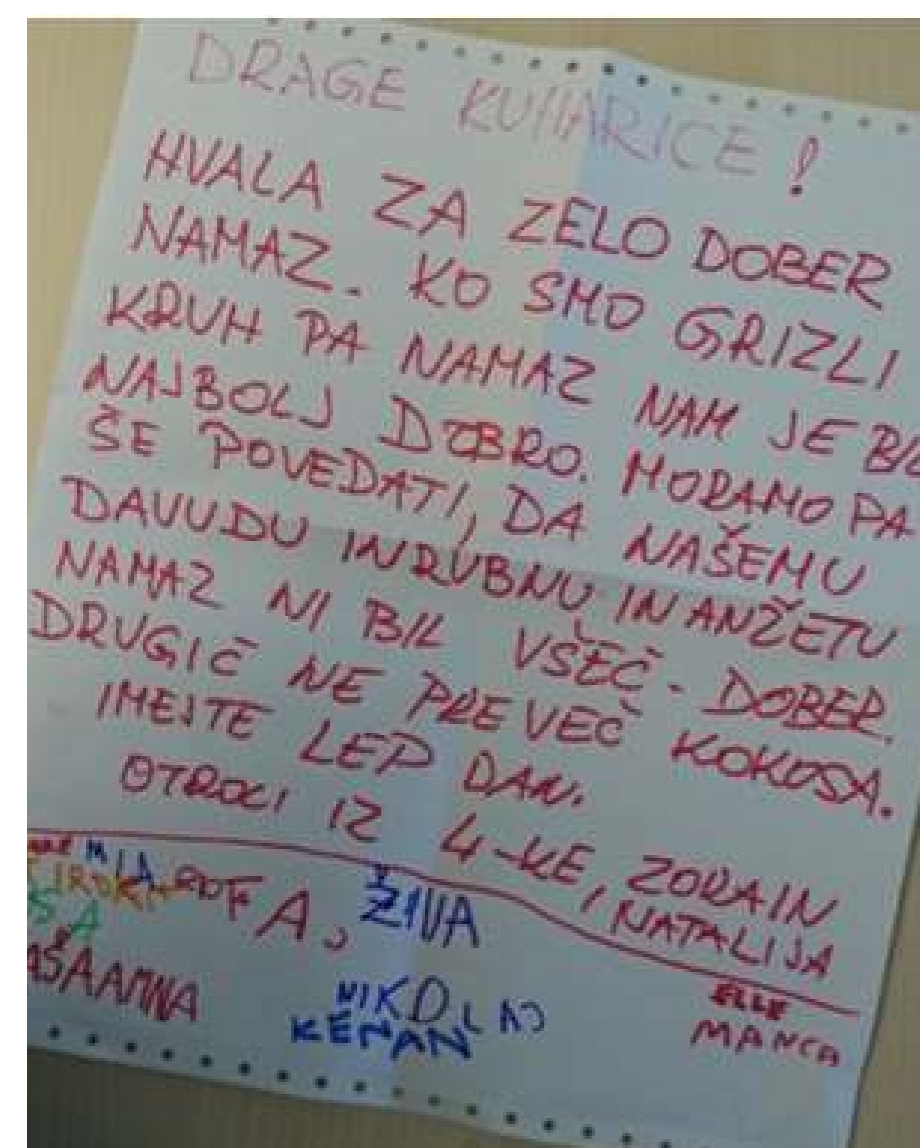 DRAGE KUHARICE!
HVALA ZA ZELO DOBER
NAMAZ. KO SMO GRIZLI
KRUH PA NAMAZ NAM JE
NAJBOLJ DOBRO. MORAMO PA
ŠE POVEDATI, DA NAŠEMU
DAVUDU IN RUBNU IN ANŽETU
NAMAZ NI BIL VŠEČ - DOBER.
DRUGIČ NE PREVEČ KOKOSA.
IMEJTE LEP DAN.
OTROCI IZ 4-KE, ZORA IN
NATALIJA
MIA
ŽIVA
AŠA AMNA
NIKOLAJ
KENAN
ELLE
MANCA